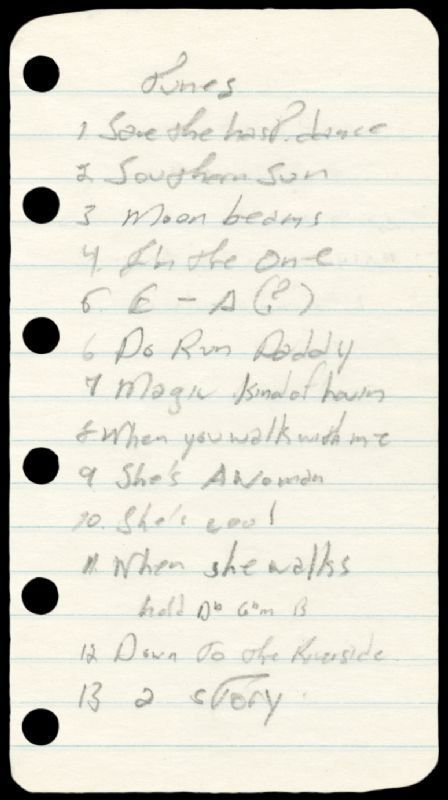 Tunes
1 Save the last dance
2 Southern Sun
3 Moon beams
4. I'm the one
5. E - A (?)
6 Do Run Daddy
7 Magic kind of
8 When you walk with me
9 She's A Woman
10. She's cool
11 When she walks
hold Db Gbm B
12 Down To the Riverside
13 a story